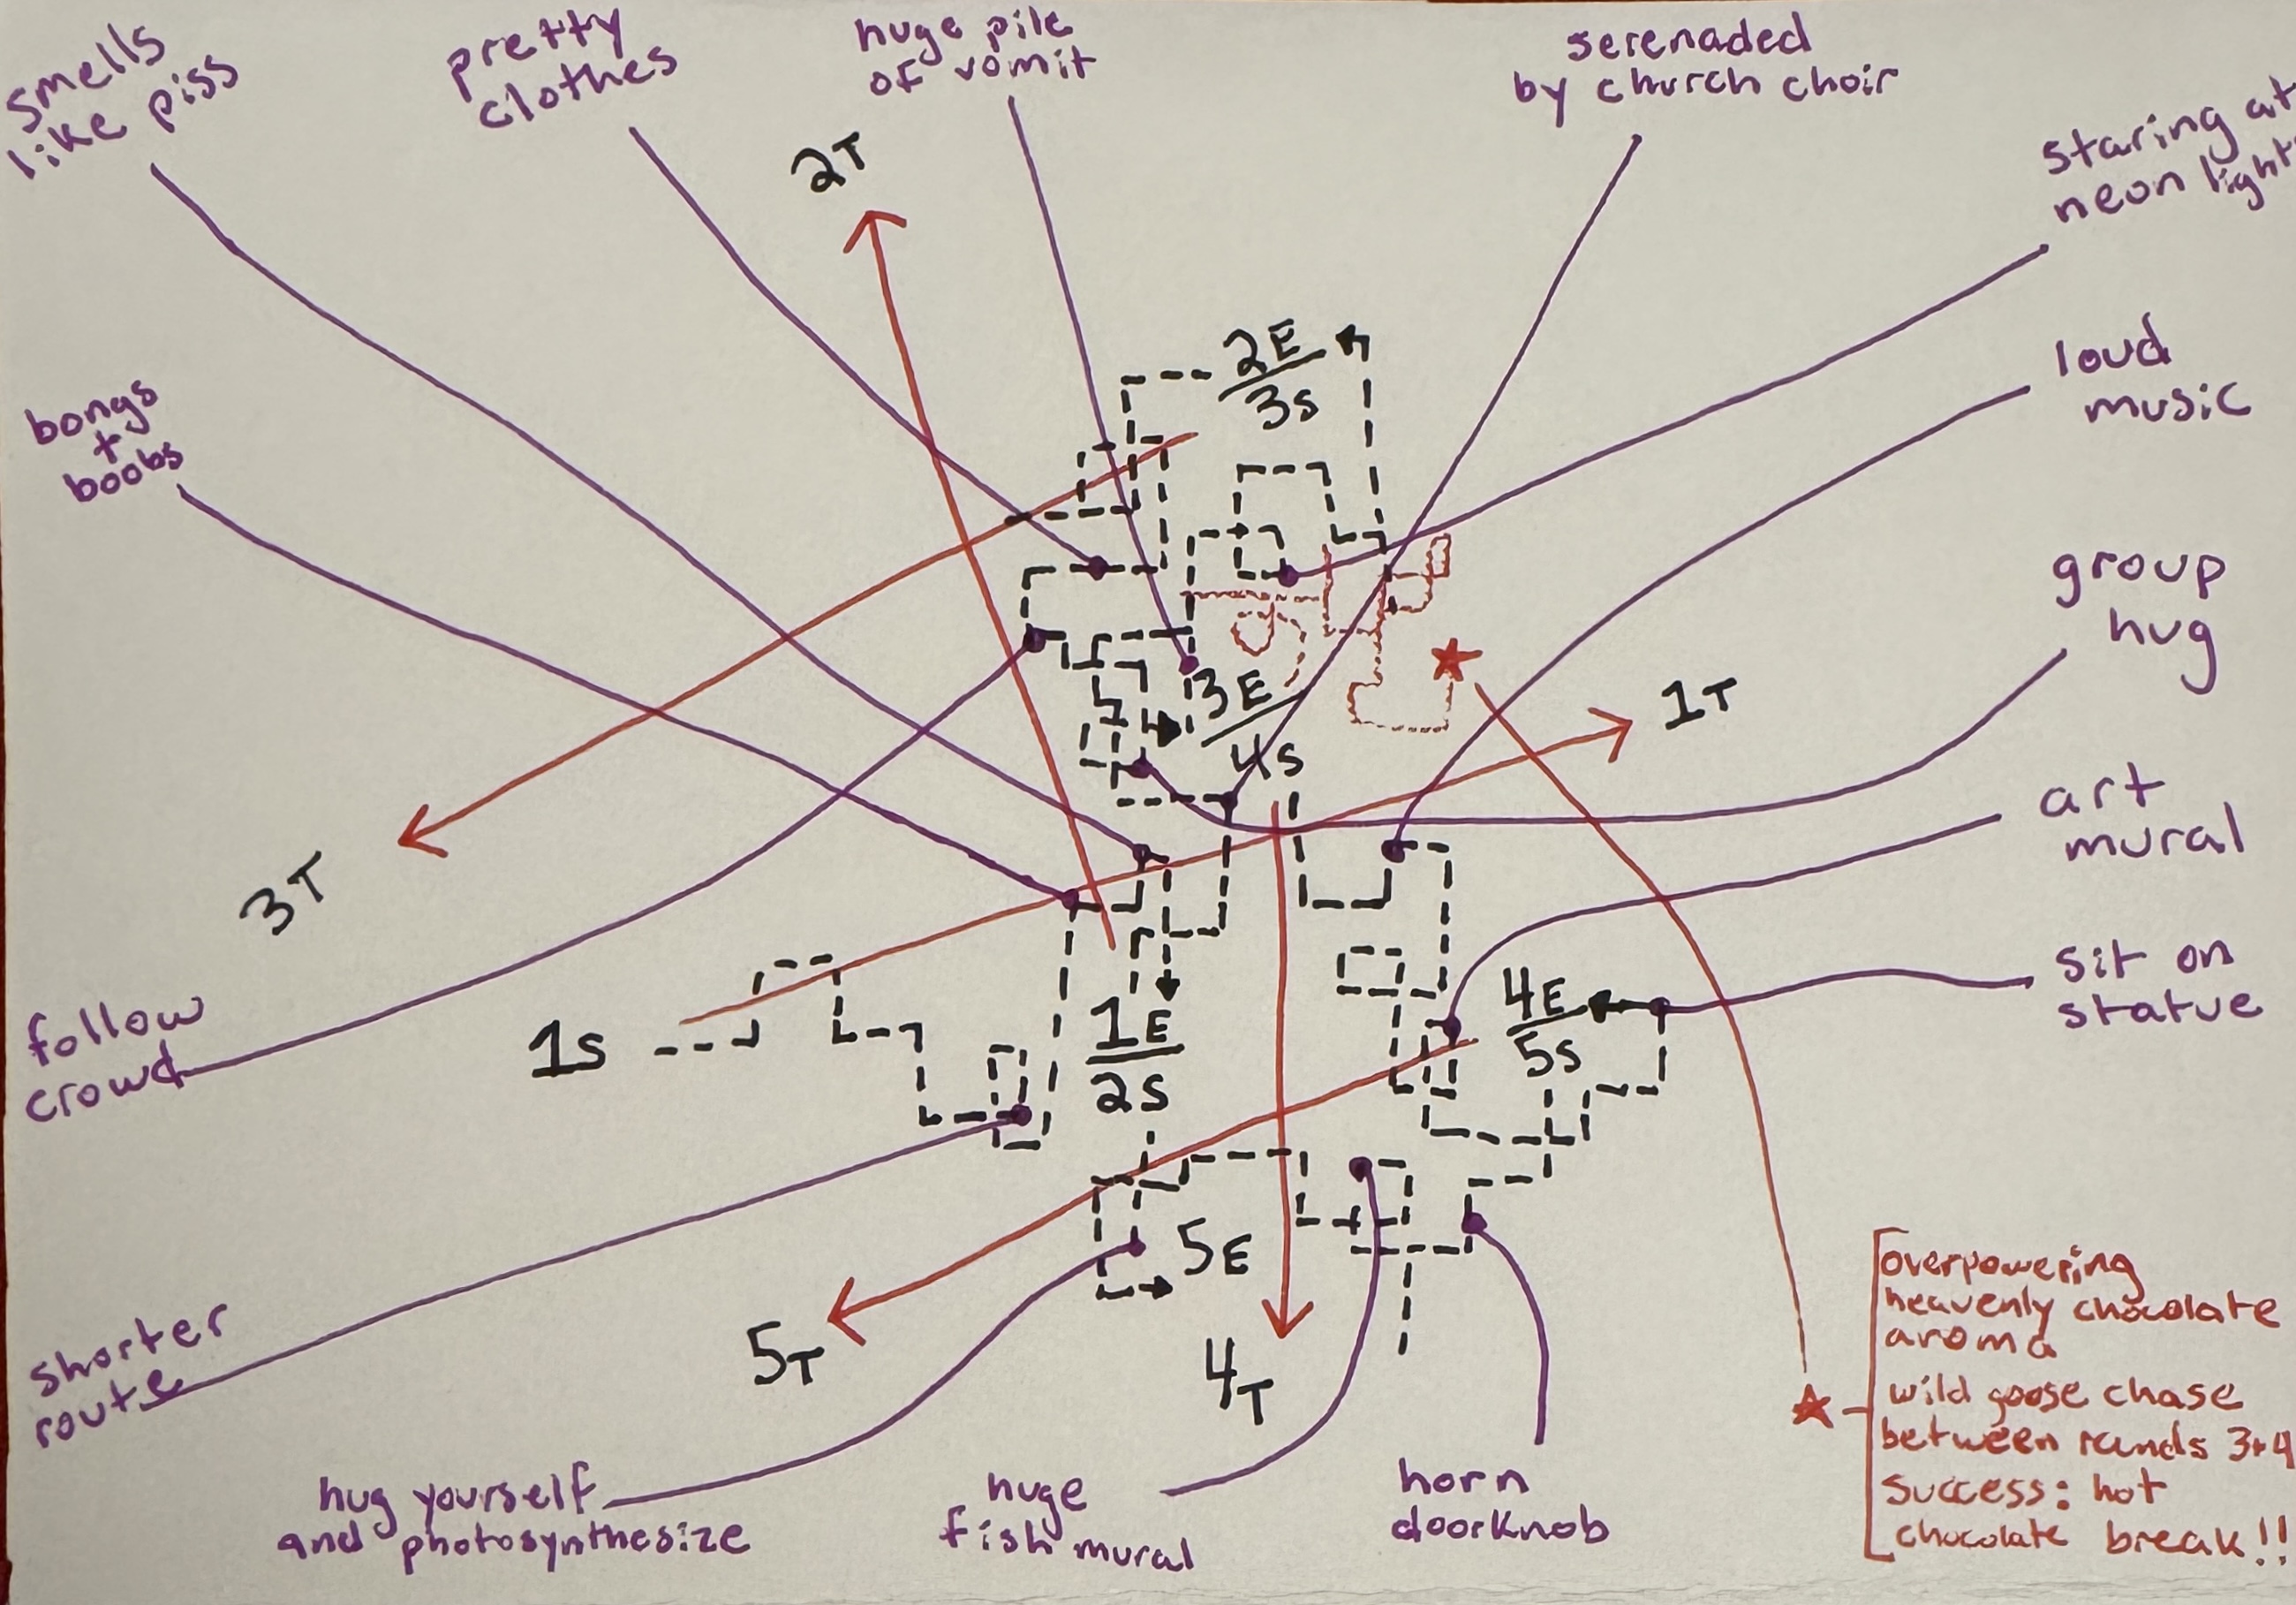 smells
like piss
pretty
clothes
huge pile
of vomit
serenaded
by church choir
staring at
neon light
2T
bongs
+
boobs
2E
3S
loud
music
group
hug
3E
4S
1T
art
mural
3T
1S
1E
2S
4E
5S
sit on
statue
follow
crowd
5E
5T
4T
shorter
route
hug yourself
and photosynthesize
huge
fish mural
horn
doorknob
overpowering
heavenly chocolate
aroma
wild goose chase
between rounds 3+4
success: hot
chocolate break!!